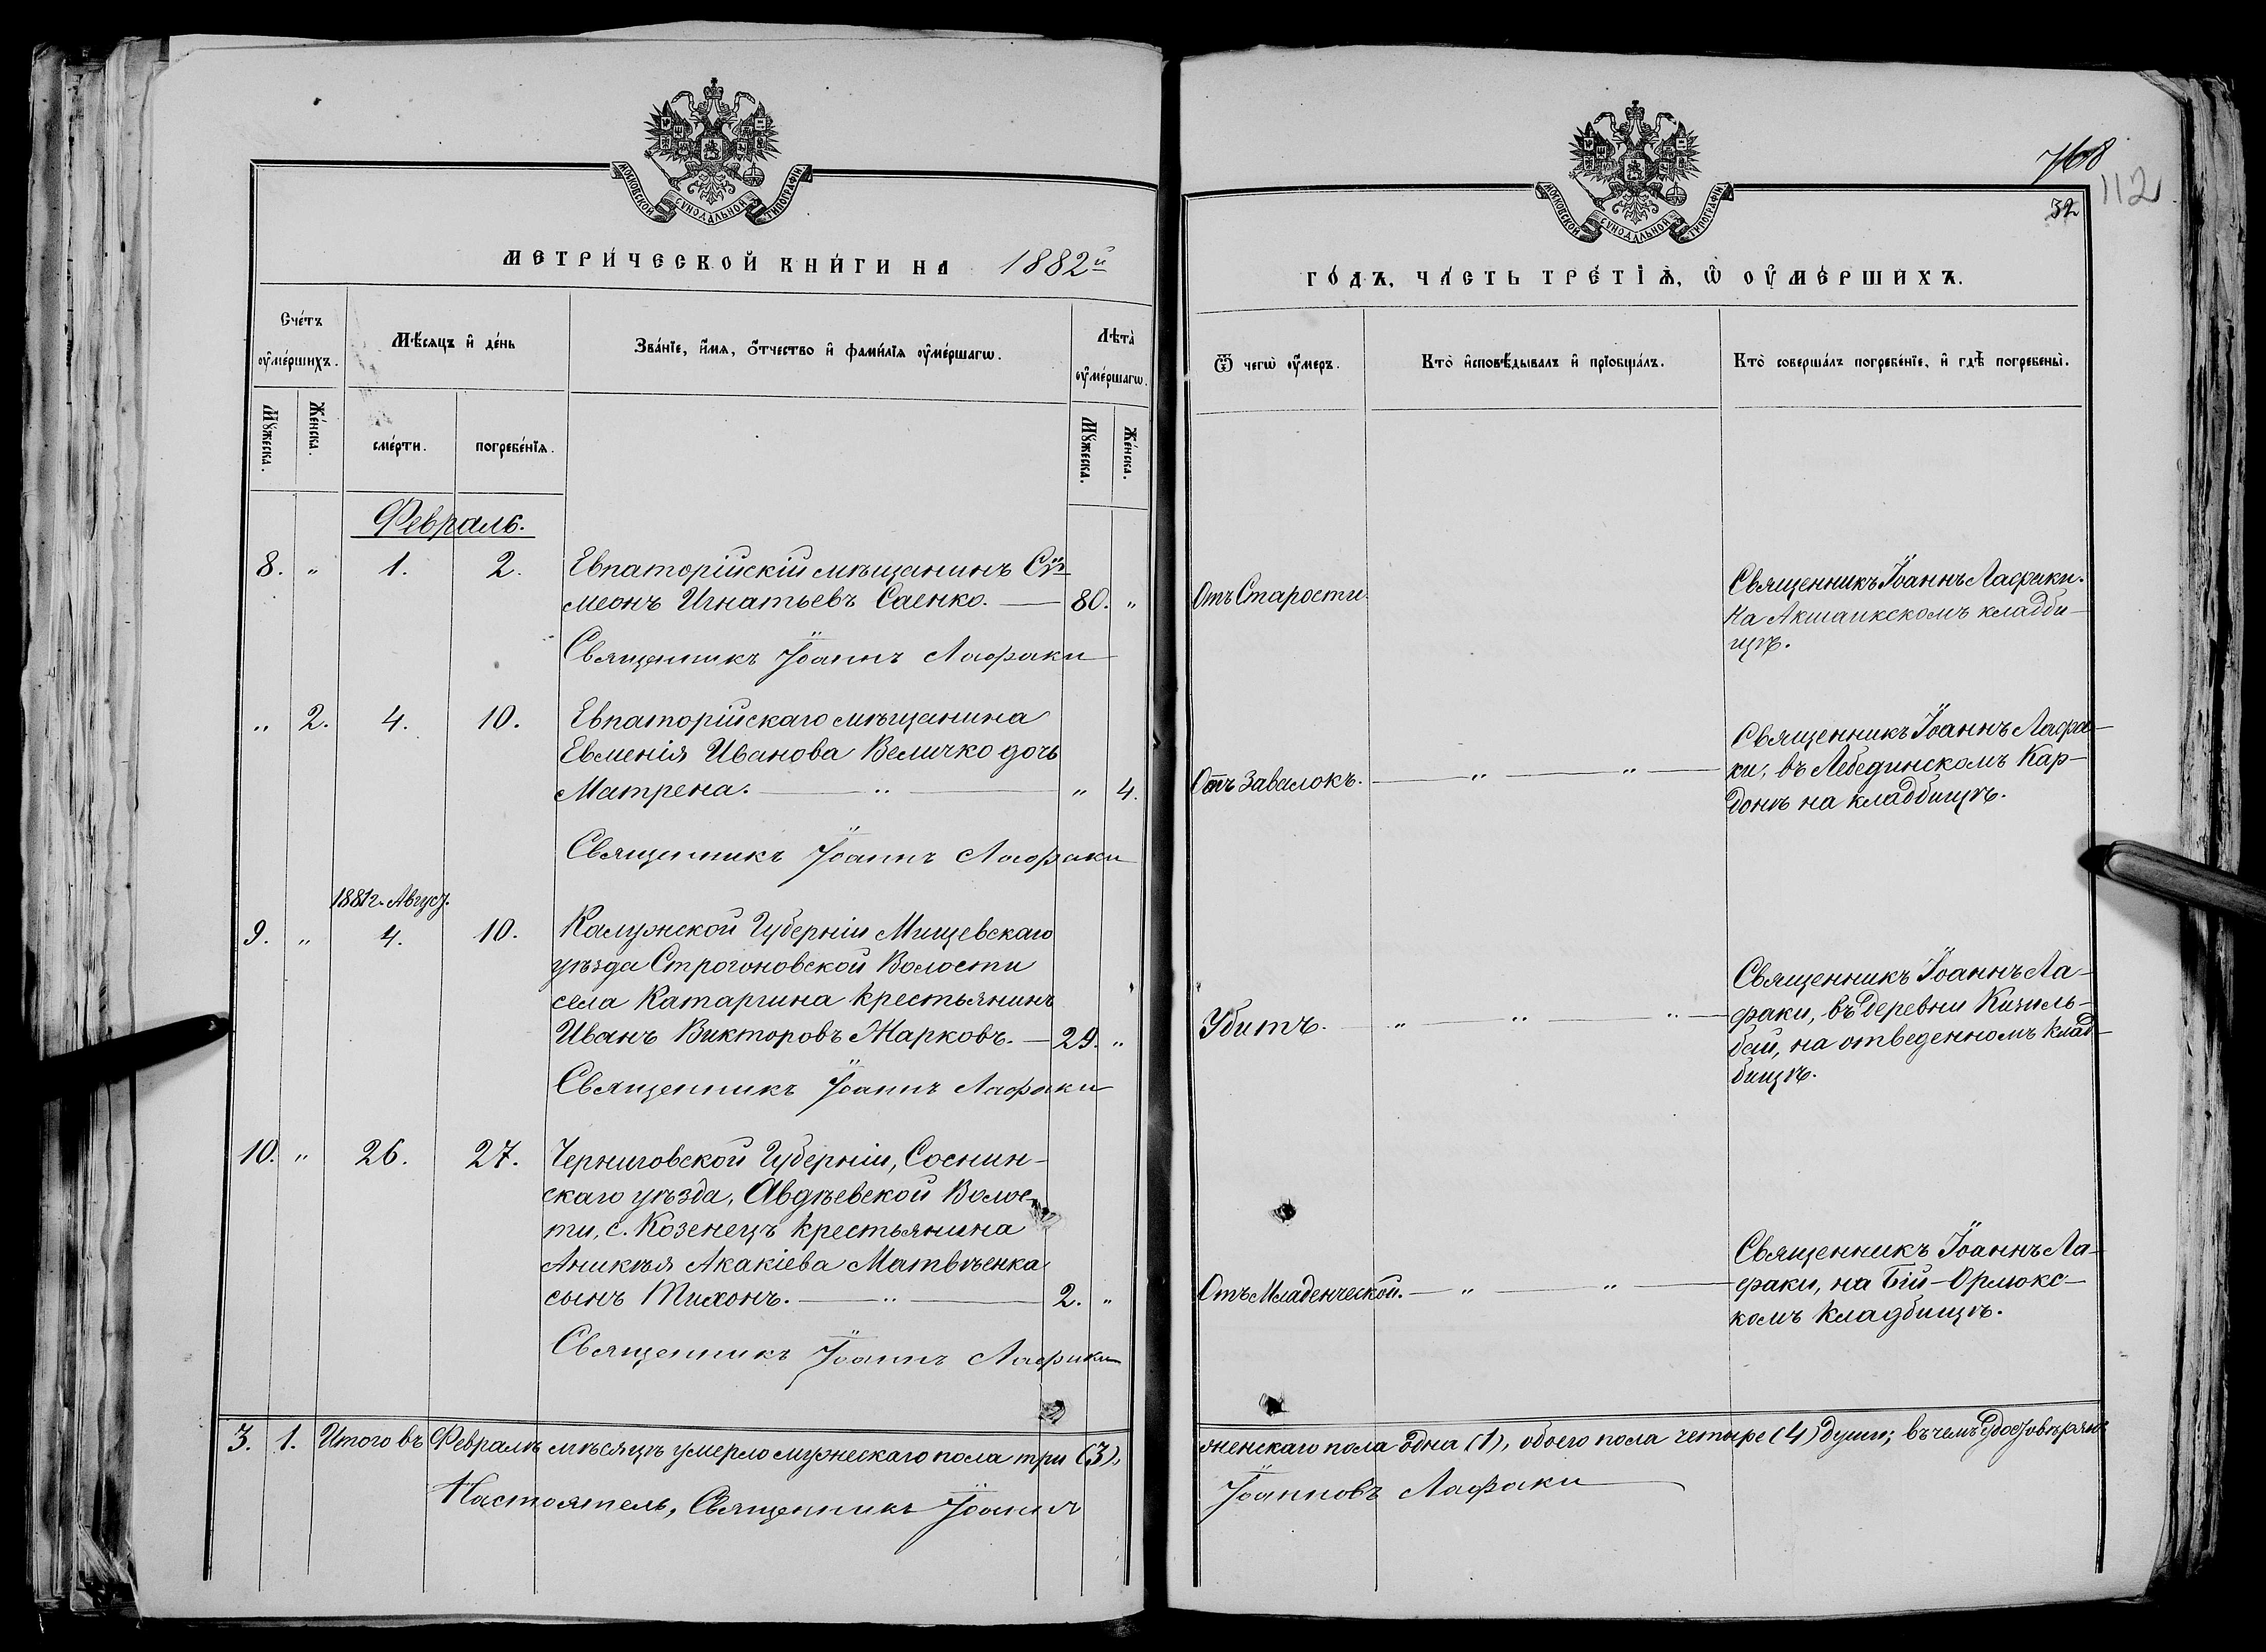 МОСКОВСКОЙ СѴНОДАЛЬНОЙ ТИПОГРАФІИ
МЕТРИ́ЧЕСКОЙ КНИ́ГИ НА 1882й
Сче́тъ ᲂу҆ме́ршихъ.
Мѣ́сяцъ и҆ де́нь
Зва́нїе, и҆́мя, ѻ҆́тчество и҆ фами́лїя ᲂу҆ме́ршагѡ.
Лѣта̀ ᲂу҆ме́ршагѡ.
Мꙋ́жеска.
Же́нска.
сме́рти.
погребе́нїѧ.
Мꙋ́жеска.
Же́нска.
Февраль.
8. „ 1. 2. Евпаторійскій мѣщанинъ Си-
меонъ Игнатьевъ Саенко. — 80. „
Священникъ Іоаннъ Лафаки
„ 2. 4. 10. Евпаторійскаго мѣщанина
Евменія Иванова Величко дочь
Матрена. — „ — „ 4.
Священникъ Іоаннъ Лафаки
1881г. Авгус.
9. „ 4. 10. Калужской Губерніи Мищевскаго
уѣзда Строгоновской Волости
села Катаргина крестьянинъ
Иванъ Викторовъ Жарковъ. — 29. „
Священникъ Іоаннъ Лафаки
10. „ 26. 27. Черниговской Губерніи, Соснин-
скаго уѣзда, Авдѣевской Волос-
ти, с. Козенецъ крестьянина
Аникѣя Акакіева Матвѣенка
сынъ Тихонъ. — „ — 2. „
Священникъ Іоаннъ Лафаки
3. 1. Итого въ Февралѣ мѣсяцѣ умерло мужескаго пола три (3),
Настоятель, Священникъ Іоаннъ
768
112
32
МОСКОВСКОЙ СѴНОДАЛЬНОЙ ТИПОГРАФІИ
ГО́ДЪ, ЧА́СТЬ ТРЕ́ТІѦ, Ѡ҆ ОУ҆МЕ́РШИХЪ.
Ѿ чегѡ̀ ᲂу҆́меръ.
Кто̀ и҆сповѣ́дывалъ и҆ прїобща́лъ.
Кто̀ соверша́лъ погребе́нїе, и҆ гдѣ̀ погребены̀.
Отъ Старости.
Священникъ Іоаннъ Лафаки.
На Акшаикскомъ кладби-
щѣ.
Отъ Завалокъ. — „ — „ —
Священникъ Іоаннъ Лафа-
ки, въ Лебединскомъ Кар-
донѣ на кладбищѣ.
Убитъ. „ — „ — „ —
Священникъ Іоаннъ Ла-
факи, въ деревни Кизиль-
бай, на отведенномъ клад-
бищѣ.
Отъ Младенческой. — „ — „ —
Священникъ Іоаннъ Ла-
факи, на Бій-Орлюкс-
комъ кладбищѣ.
женскаго пола одна (1), обоего пола четыре (4) души; въ чемъ удостовѣряю
Іоанновъ Лафаки